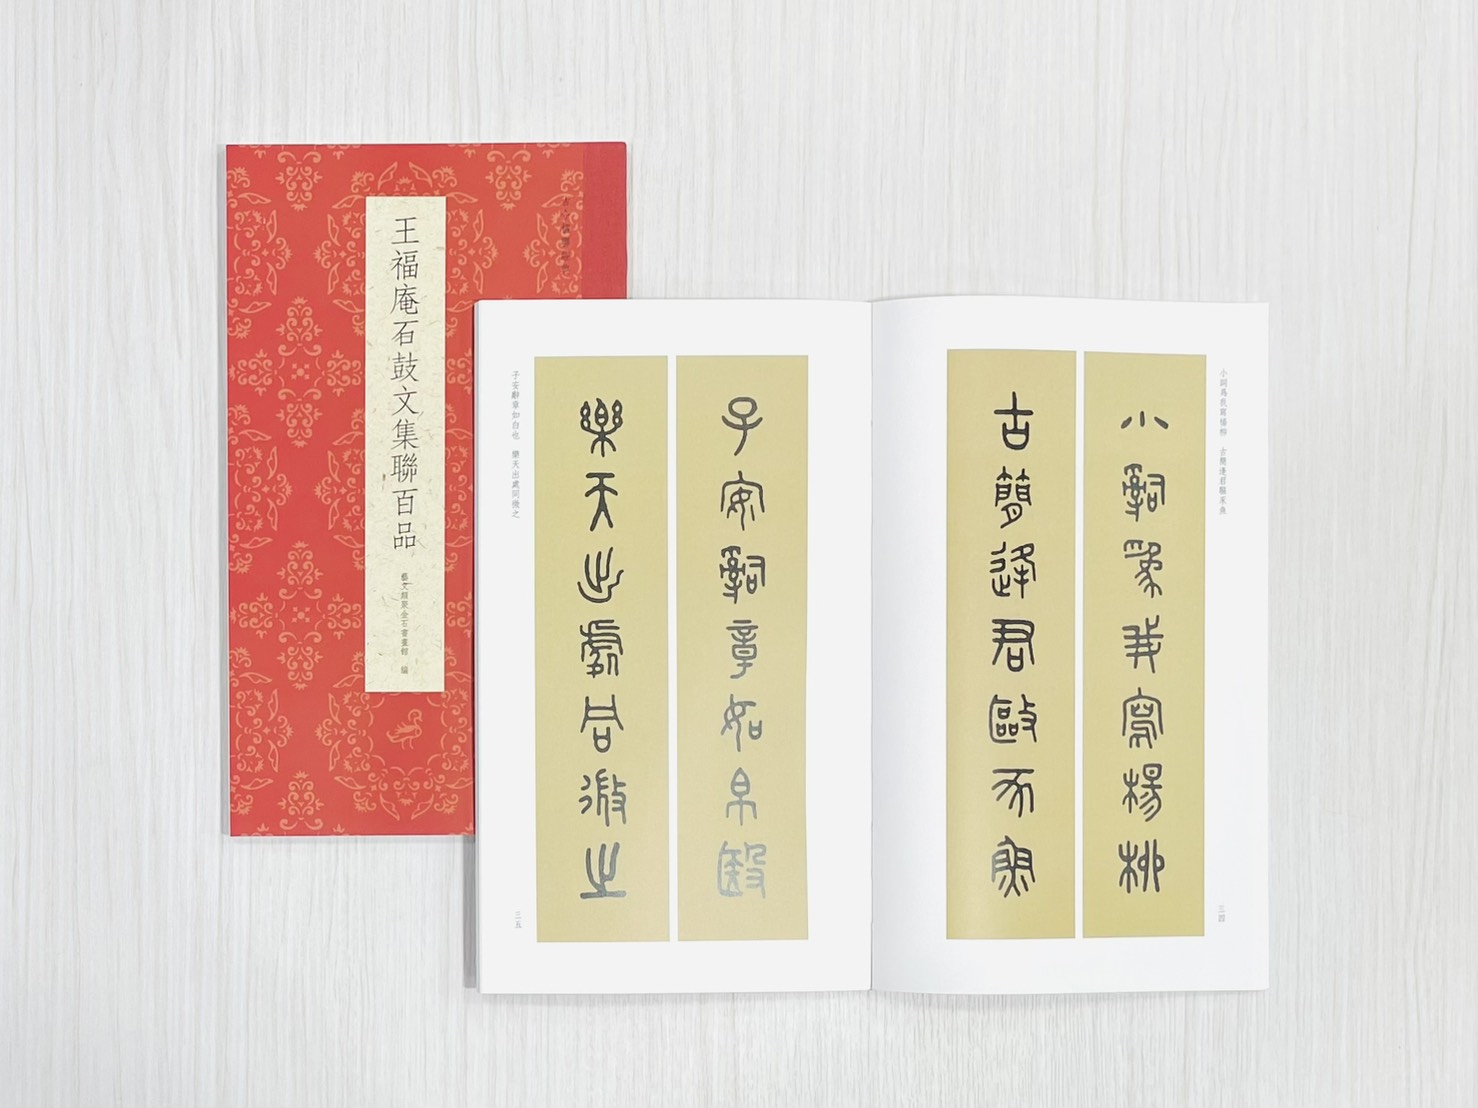 王福庵石鼓文集聯百品
藝文類聚金石書畫館 編
小詞爲我寫楊柳 古簡逢君驅豕魚
小辭爲我寫楊柳
古簡逢君毆豕魚
三四
子安辭章如帛殹
樂天出處同微之
子安辭章如白也 樂天出處同微之
三五